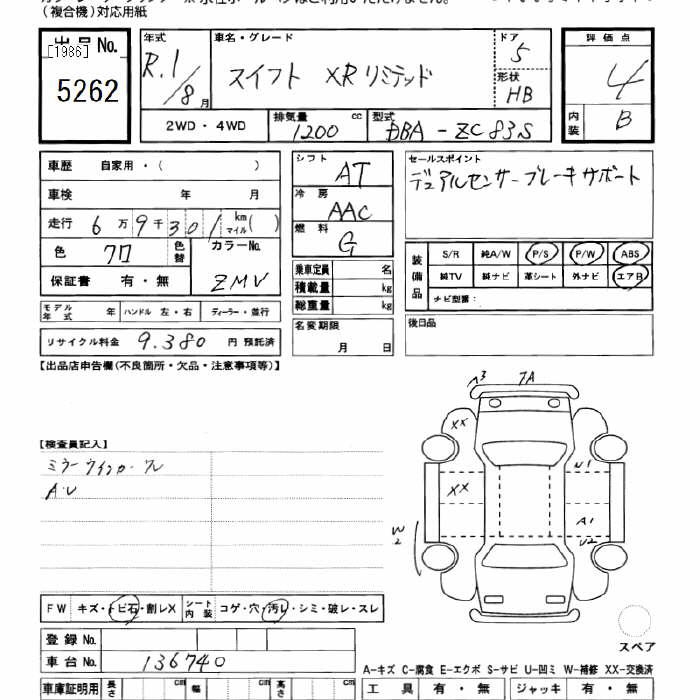 （複合機）対応用紙
出品No. [1986] 5262
年式 R.1/8月
車名・グレード スイフト XRリミテッド
ドア 5
形状 HB
評価点 4
内装 B
2WD・4WD
排気量 1200 cc
型式 DBA-ZC83S
車歴 自家用・( )
車検 年 月
走行 6万9千301 km マイル( )
色 クロ 色替
カラーNo. ZMV
保証書 有・無
シフト AT
冷房 AAC
燃料 G
乗車定員 名
積載量 kg
総重量 kg
セールスポイント
デュアルセンサーブレーキサポート
装備品 S/R 純A/W P/S P/W ABS
純TV 純ナビ 革シート 外ナビ エアB
ナビ型番：
モデル年式 年 ハンドル 左・右 ディーラー・並行
名変期限 月 日
後日品
リサイクル料金 9.380 円 預託済
【出品店申告欄(不良箇所・欠品・注意事項等)】
A3 7A
XX
【検査員記入】
ミラーウインカーワレ
A・U
U1
XX
A1
W2
U2
FW キズ・トビ石・割レX シート内装 コゲ・穴・汚レ・シミ・破レ・スレ
登録No.
スペア
車台No. 136740
A-キズ C-腐食 E-エクボ S-サビ U-凹ミ W-補修 XX-交換済
車庫証明用 長さ cm 幅 cm 高さ cm 工具 有・無 ジャッキ 有・無